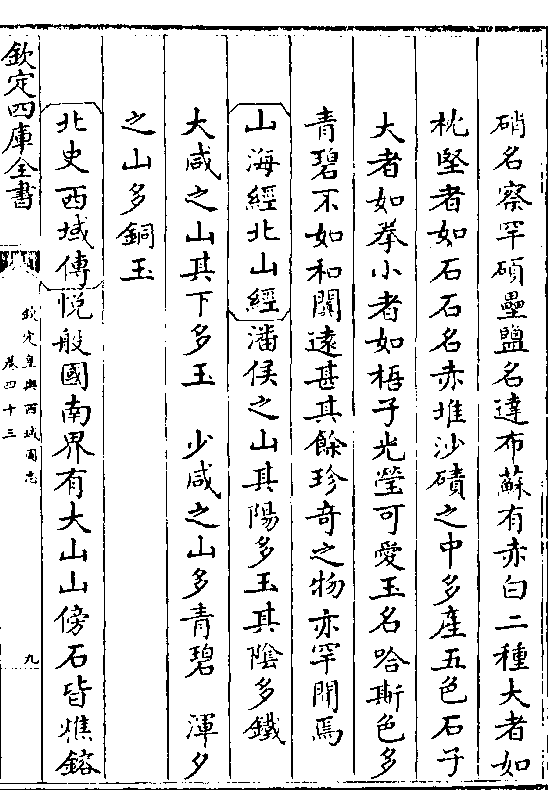 硝名察罕碩壘盬名達布蘇有赤白二種大者如
枕堅者如石石名赤堆沙磧之中多產五色石子
大者如拳小者如梧子光瑩可愛玉名哈斯色多
青碧不如和闐遠甚其餘珍奇之物亦罕聞焉
山海經北山經潘侯之山其陽多玉其陰多鐵
大咸之山其下多玉　少咸之山多青碧　渾夕
之山多銅玉
北史西域傳悅般國南界有大山山傍石皆燋鎔
欽定四庫全書
欽定皇輿西域圖志
卷四十三
九